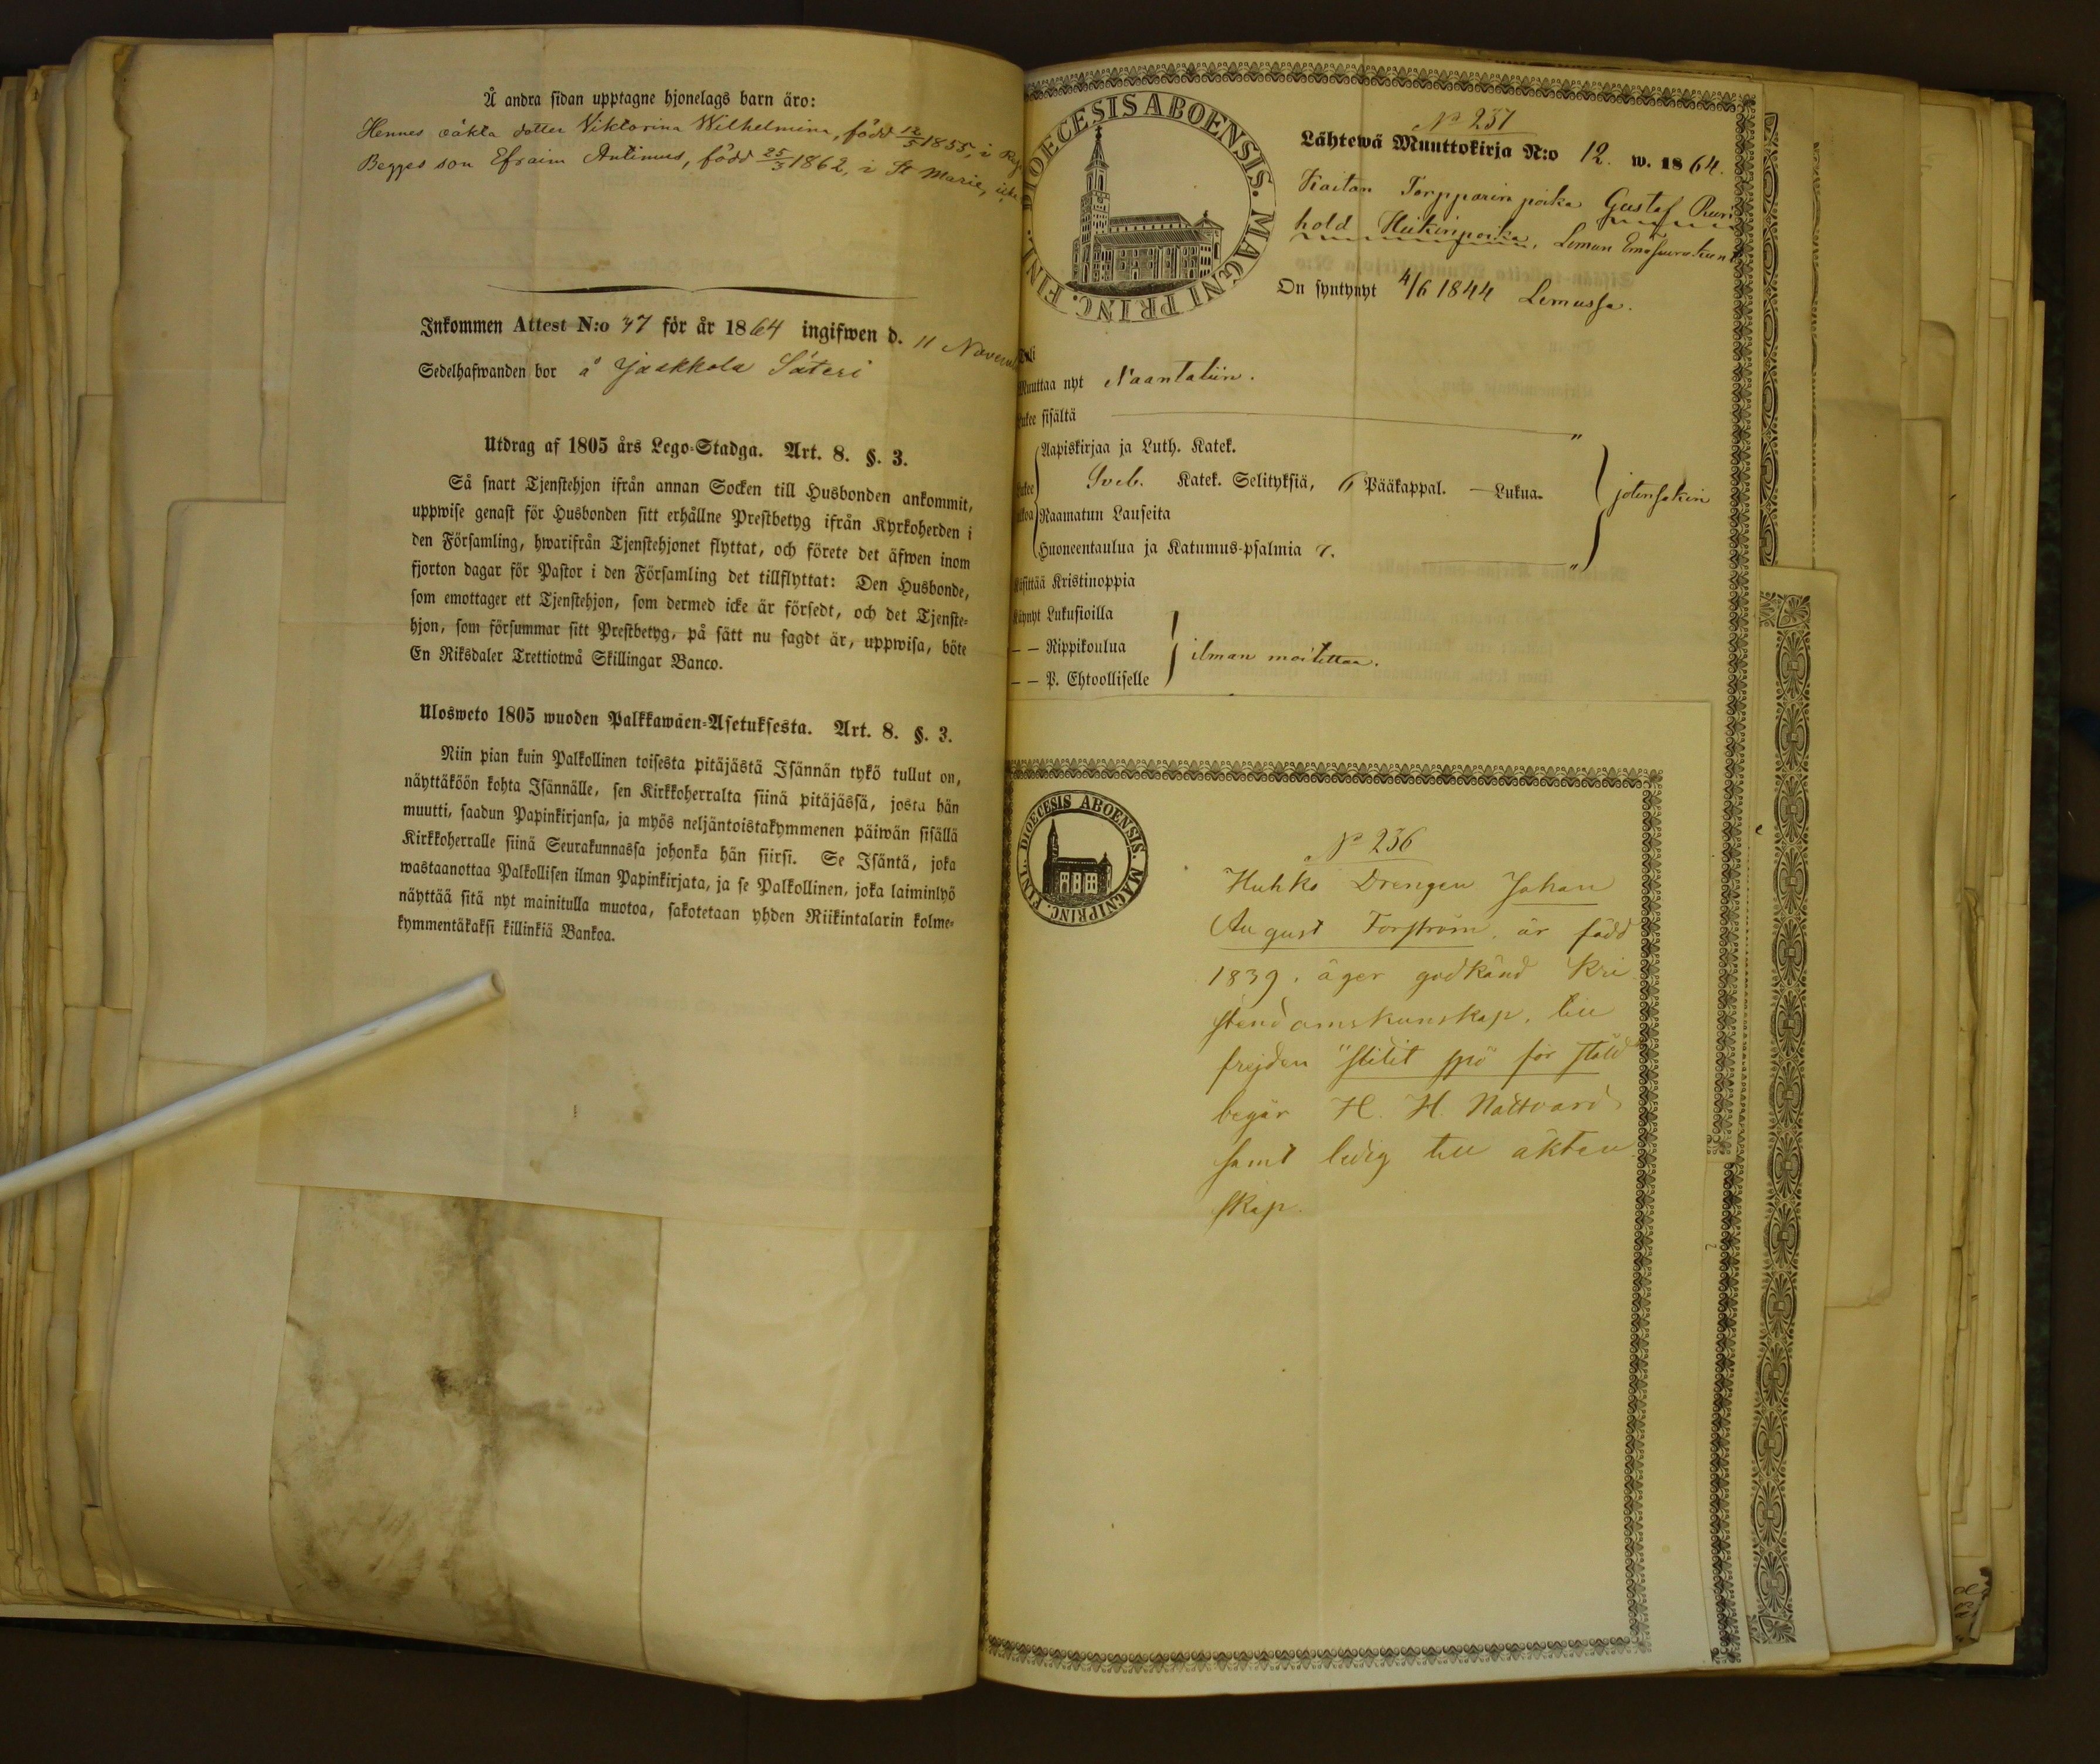 Å andra sidan upptagne hjonelags barn äro:
Hennes oäkta dotter Viktorina Wilhelmina, född 12/5 1855, i
Begges son Efraim Antimus, född 25/3 1862, i St Marie,
Inkommen Attest N:o 47 för år 1864 ingifwen d. 11
Sedelhafwanden bor å Jaakkola Säteri
Utdrag af 1805 års Lego-Stadga. Art. 8. §. 3.
Så snart Tjenstehjon ifrån annan Socken till Husbonden ankommit,
uppwise genast för Husbonden sitt erhållne Prestbetyg ifrån Kyrkoherden i
den Församling, hwarifrån Tjenstehjonet flyttat, och förete det äfwen inom
fjorton dagar för Pastor i den Församling det tillflyttat: Den Husbonde,
som emottager ett Tjenstehjon, som dermed icke är försedt, och det Tjenste-
hjon, som försummar sitt Prestbetyg, på sätt nu sagdt är, uppwisa, böte
En Riksdaler Trettiotwå Skillingar Banco.
Ulosweto 1805 wuoden Palkkawäen-Asetuksesta. Art. 8. §. 3.
Niin pian kuin Palkollinen toisesta pitäjästä Isännän tykö tullut on,
näyttäköön kohta Isännälle, sen Kirkkoherralta siinä pitäjässä, josta hän
muutti, saadun Papinkirjansa, ja myös neljäntoistakymmenen päiwän sisällä
Kirkkoherralle siinä Seurakunnassa johonka hän siirsi. Se Isäntä, joka
wastaanottaa Palkollisen ilman Papinkirjata, ja se Palkollinen, joka laiminlyö
näyttää sitä nyt mainitulla muotoa, sakotetaan yhden Riikintalarin kolme-
kymmentäkaksi killinkiä Bankoa.
DIOECESIS ABOENSIS. MAGNI PRINC. FINL.
No 237
Lähtewä Muuttokirja N:o 12. w. 1864.
Kaitan Torpparin poika Gustaf
hold Heikinpoika, Lemun
On syntynyt 4/6 1844 Lemussa.
Muuttaa nyt Naantaliin.
Lukee sisältä "
Aapiskirjaa ja Luth. Katek.
Sveb. Katek. Selityksiä, 6 Pääkappal. — Lukua. jotensakin
Raamatun Lauseita
Huoneentaulua ja Katumus-psalmia 7. "
Käsittää Kristinoppia
Käynyt Lukusioilla
— — Rippikoulua ilman moitettaa.
— — P. Ehtoolliselle
DIOECESIS ABOENSIS. MAGNI PRINC. FINL.
No 236
Huhko Drengen Johan
August Forström, är född
1839. äger godkänd Kri
stendomskunskap, till
frejden "slitit spö för stöld"
begår H. H. Nattvard
samt ledig till äkten
skap.